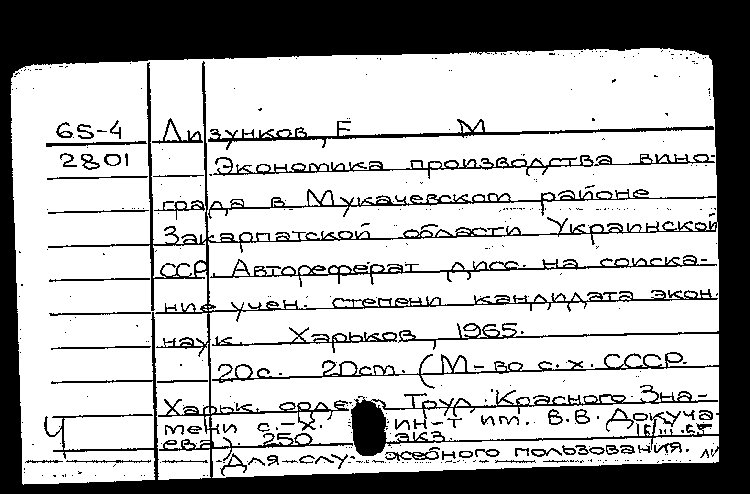 65-4 Лизунков, Е М
2801 Экономика производства вино-
града в Мукачевском районе
Закарпатской области Украинской
ССР. Автореферат дисс. на соиска-
ние учен. степени кандидата экон.
наук. Харьков, 1965.
20с. 20см. (М-во с.х. СССР.
Харьк. ордена Труд. Красного Зна-
Ч мени с.-х. ин-т им. В.В. Докуча-
ева). 250 экз.
Для служебного пользования.